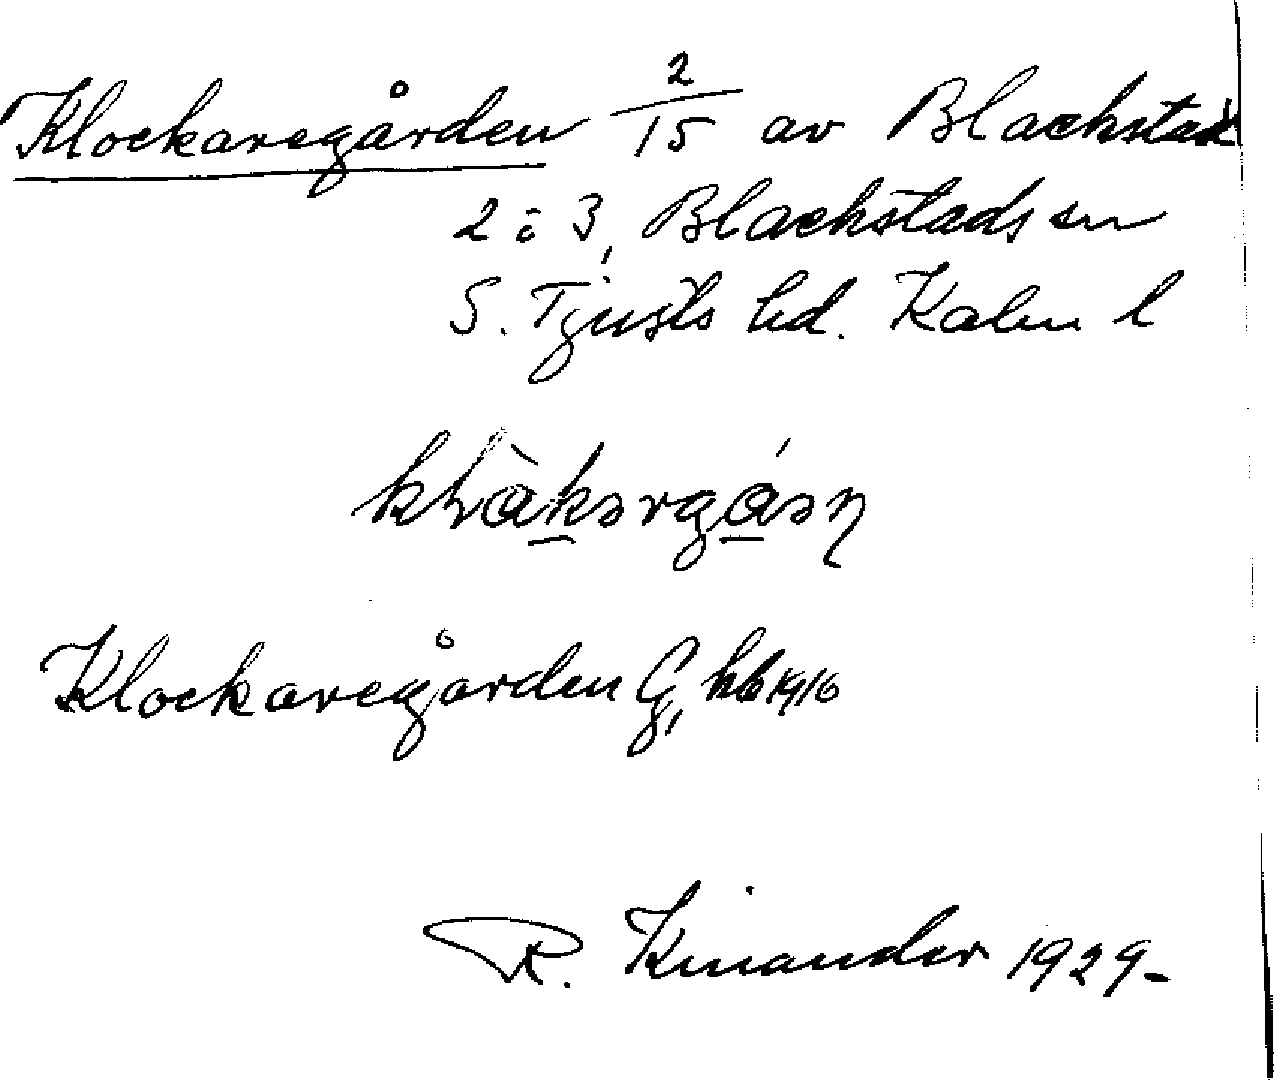 Klockaregården 2/15 av Blackstad
2:3, Blackstads sn
S. Tjusts hd. Kalm l
Klockaregården G, hb 1916
R. Kinander 1929-